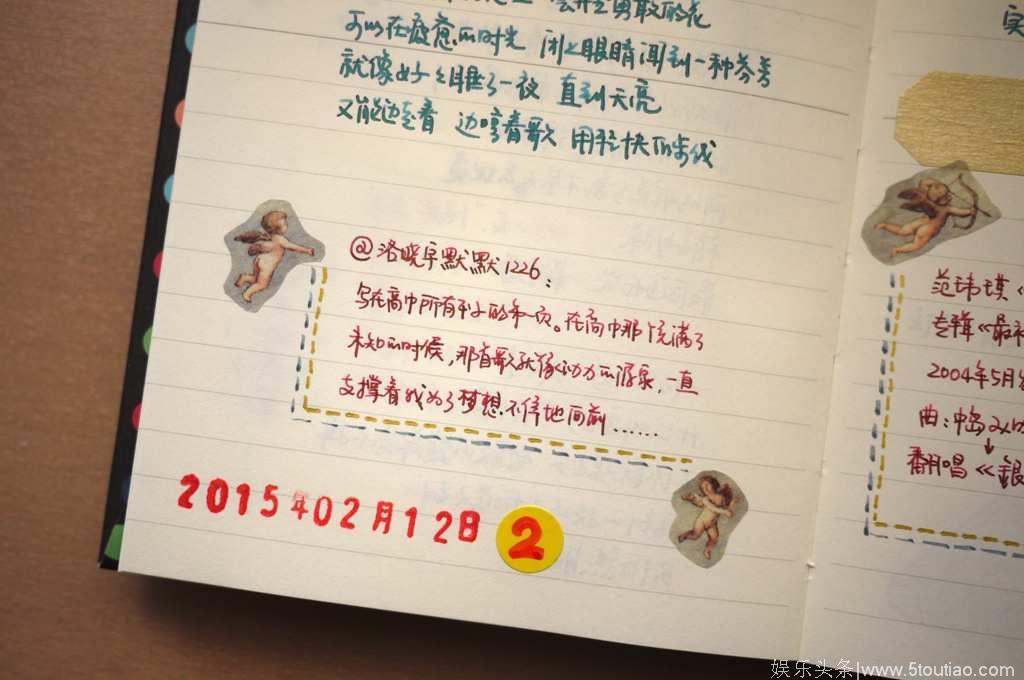 会开出勇敢的花
可以在疲惫的时光 闭上眼睛闻到一种芬芳
就像好々睡了一夜 直到天亮
又能边走着 边哼着歌 用轻快的步伐
@洛晓默默1226：
写在高中所有本子的第一页。在高中那充满了
未知的时候，那首歌就像动力的源泉，一直
支撑着我为了梦想不停地向前……
2015年02月12日 2
实
范玮琪《
专辑《最初
2004年5月发
曲：中岛みゆ
↓
翻唱《銀
娱乐头条|www.5toutiao.com